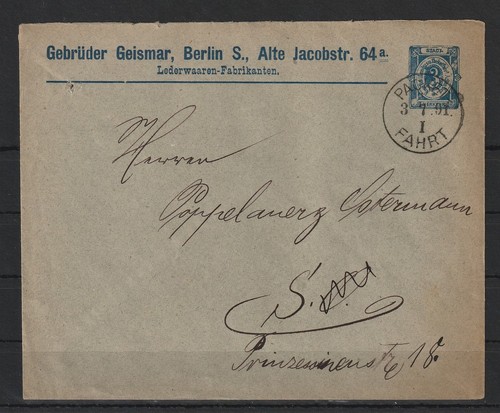 Gebrüder Geismar, Berlin S., Alte Jacobstr. 64a.
Lederwaaren-Fabrikanten.
STADT-
3
PACKET
3 7.91.
I
FAHRT
Herren
Poppelauer & Ostermann
S.
Prinzessinenstr 18.